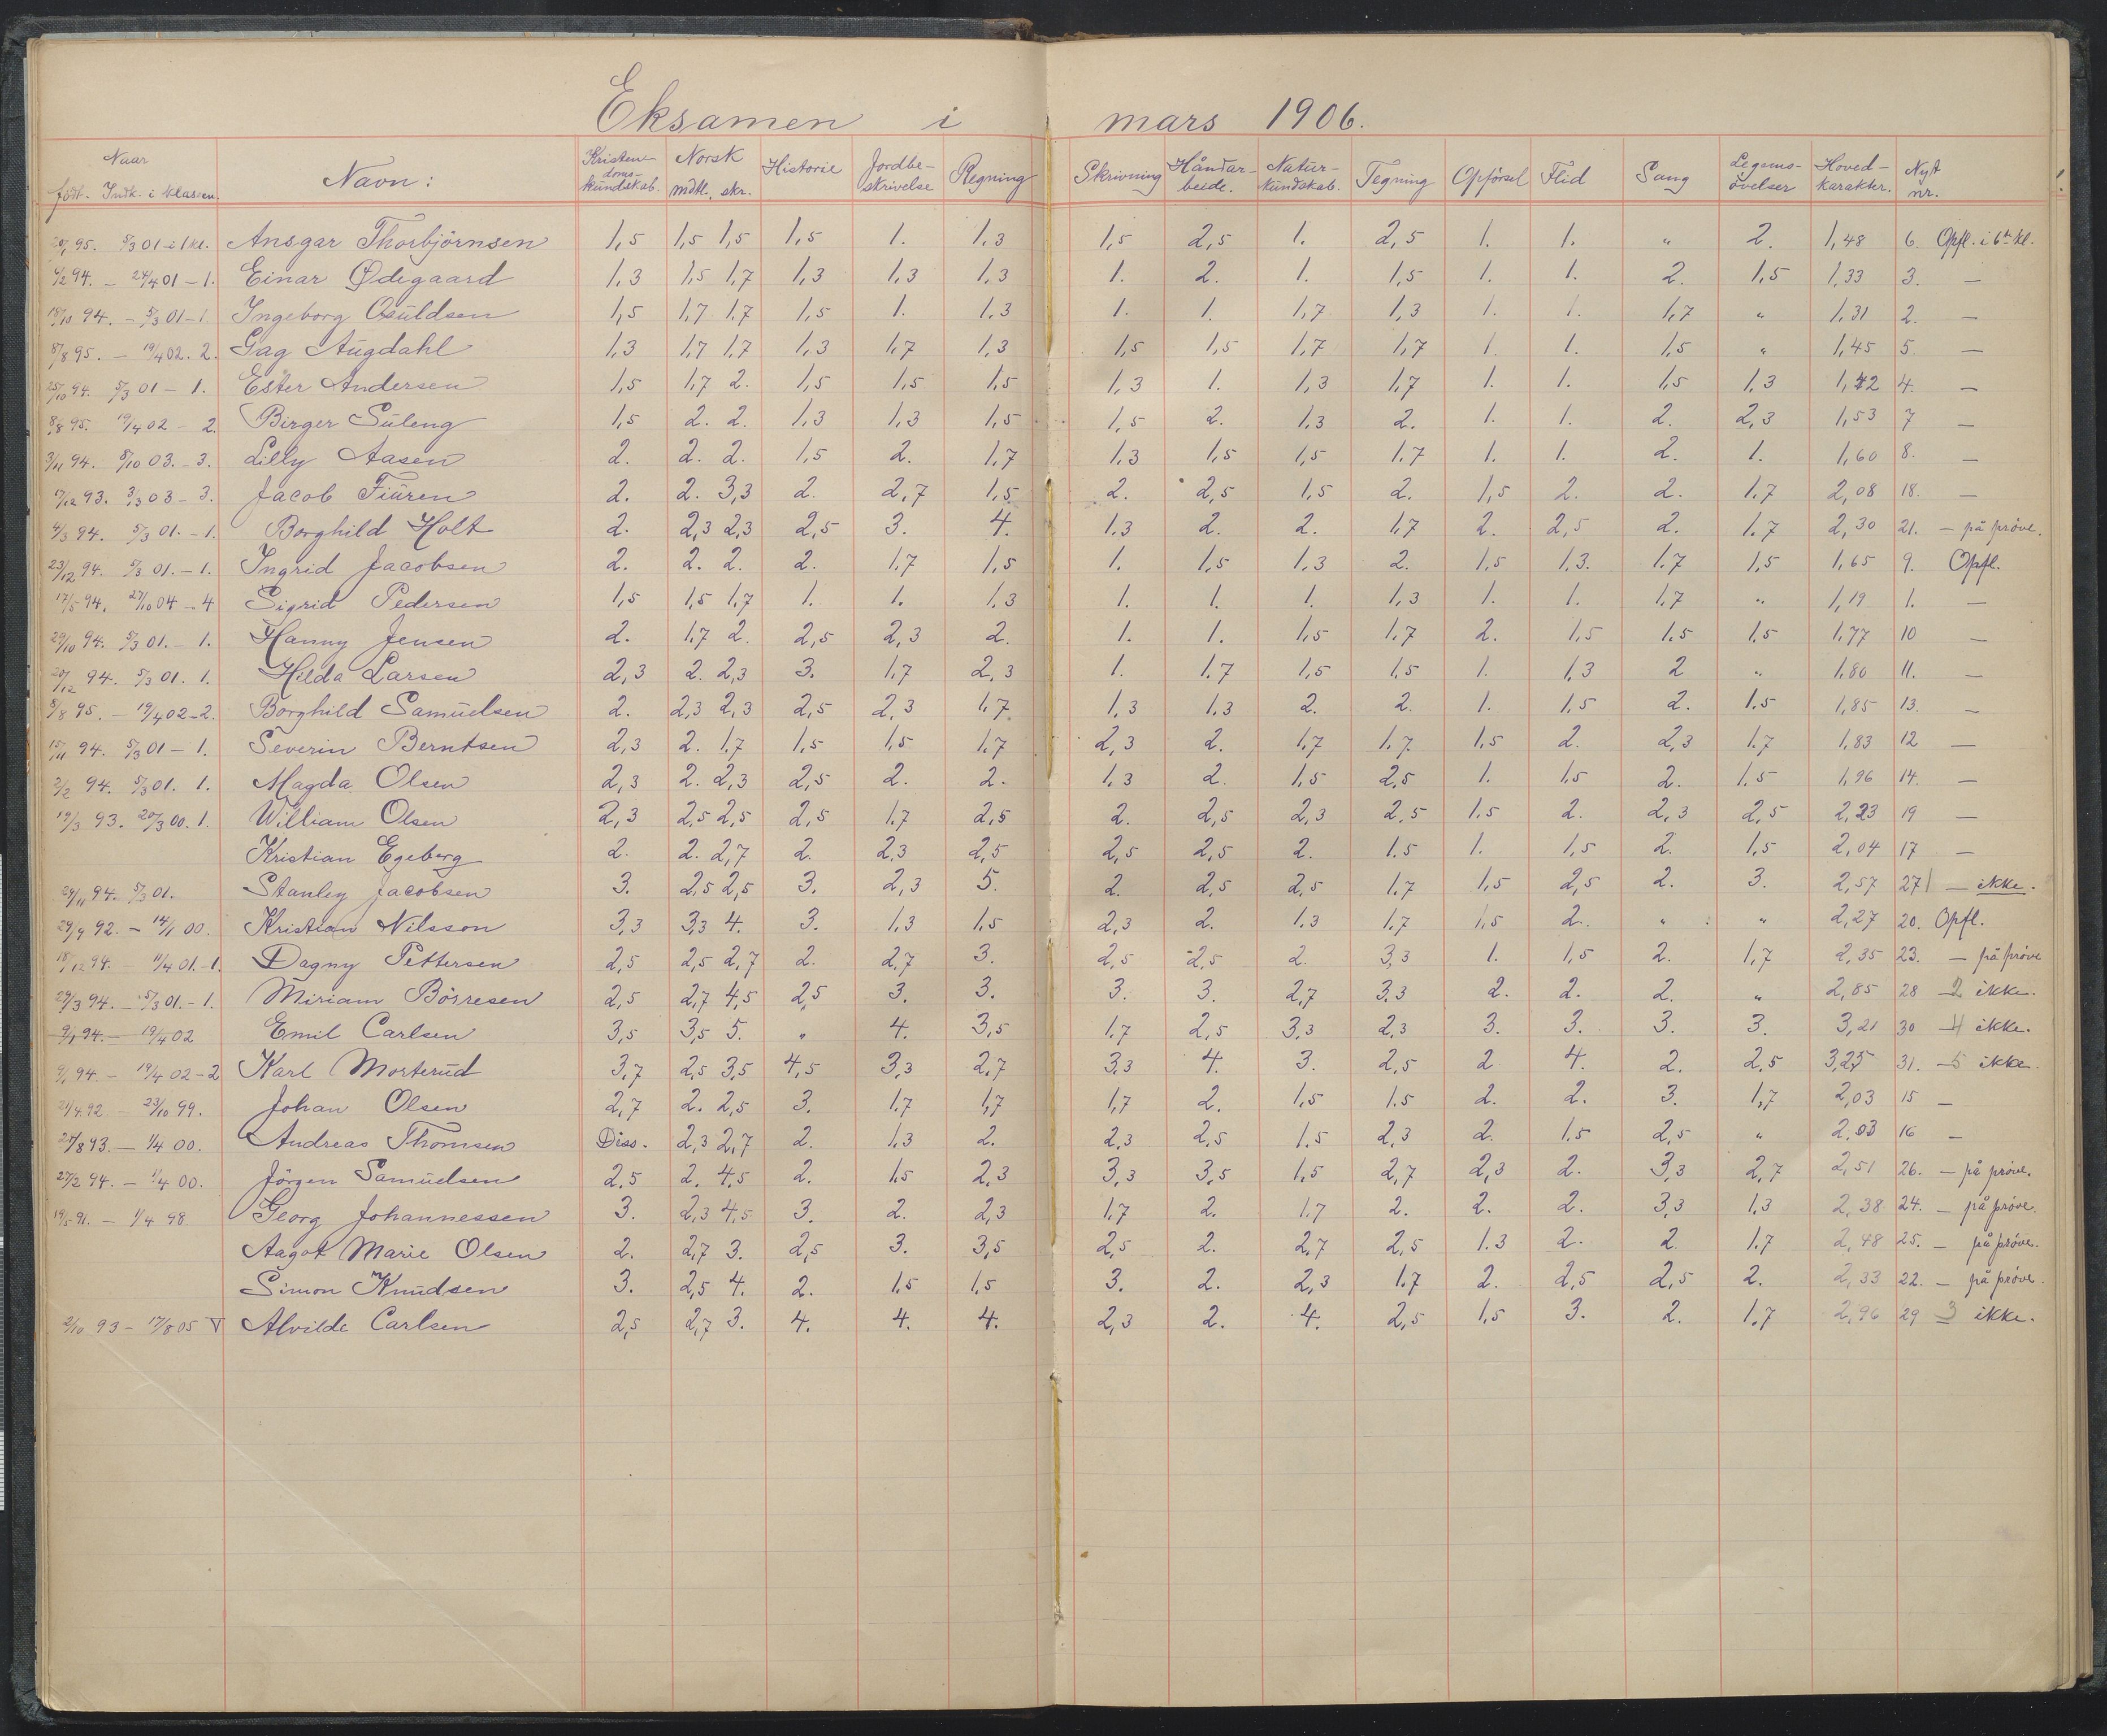 Eksamen i mars 1906.
Naar Navn: Kristendomskundskab. Norsk Historie Jordbeskrivelse Regning Skrivning Håndarbeide. Naturkundskab. Tegning Opförsel Flid Sang Legemsövelser Hovedkarakter. Nyt nr. 1.
født. Indk. i klassen. mdtl. skr.
95. 5/3 01 i 1 kl. Ansgar Thorbjörnsen 1,5 1,5 1,5 1,5 1. 1.3 1,5 2,5 1. 2,5 1. 1. " 2. 1,48 6. Opfl. i 6te kl.
4/2 94. – 24/4 01 – 1. Einar Ødegaard 1,3 1,5 1,7 1,3 1,3 1,3 1. 2. 1. 1,5 1. 1. 2. 1,5 1,33 3. —
18/10 94. – 5/3 01 – 1 Ingeborg Osuldsen 1,5 1,7 1.7 1,5 1. 1.3 1. 1. 1,7 1,3 1. 1. 1,7 " 1,31 2. —
8/8 95. – 19/4 02. 2. Gag Augdahl 1,3 1,7 1,7 1,3 1,7 1,3 1,5 1,5 1,7 1,7 1. 1. 1,5 " 1,45 5. —
25/10 94. 5/3 01 – 1. Ester Andersen 1,5 1,7 2. 1,5 1,5 1,5 1,3 1. 1,3 1,7 1. 1. 1,5 1,3 1,42 4. —
8/8 95. 19/4 02 – 2. Birger Suleng 1,5 2. 2. 1,3 1,3 1,5 1,5 2. 1.3 2. 1. 1. 2. 2,3 1,53 7 —
3/11 94. 8/10 03. – 3. Lilly Aasen 2. 2. 2. 1,5 2. 1,7 1.3 1,5 1,5 1.7 1. 1. 2. 1. 1,60 8. —
7/12 93. 3/3 03 – 3. Jacob Fiüren 2. 2. 3,3 2. 2,7 1,5 2. 2,5 1,5 2. 1,5 2. 2. 1.7 2,08 18. —
4/3 94. 5/3 01. – 1. Borghild Holt 2. 2,3 2,3 2,5 3. 4. 1.3 2. 2. 1,7 2. 2,5 2. 1.7 2,30 21. – på prøve.
23/12 94. 5/3 01. – 1. Ingrid Jacobsen 2. 2. 2. 2. 1,7 1,5 1. 1,5 1.3 2. 1,5 1,3. 1.7 1,5 1,65 9. Opfl.
17/5 94. 27/10 04 – 4 Sigrid Pedersen 1,5 1,5 1,7 1. 1. 1.3 1. 1. 1. 1,3 1. 1. 1.7 " 1,19 1. —
29/10 94. 5/3 01. – 1. Hanny Jensen 2. 1.7 2. 2,5 2,3 2. 1. 1. 1,5 1.7 2. 1,5 1.5 1.5 1,77 10 —
20/12 94. 5/3 01. 1. Hilda Larsen 2,3 2. 2,3 3. 1,7 2,3 1. 1.7 1,5 1,5 1. 1,3 2 " 1,80 11. —
8/8 95. – 19/4 02 – 2. Borghild Samuelsen 2. 2,3 2,3 2,5 2,3 1,7 1,3 1.3 2. 2. 1. 1,5 2. 1.5 1,85 13. —
15/11 94. 5/3 01 – 1. Severin Berntsen 2,3 2. 1.7 1,5 1,5 1.7 2,3 2. 1.7 1.7 1,5 2. 2,3 1.7 1,83 12 —
2/2 94. 5/3 01. 1. Magda Olsen 2,3 2. 2,3 2,5 2. 2. 1.3 2. 1,5 2,5 1. 1.5 2. 1.5 1,96 14. —
19/3 93. 20/3 00. 1. William Olsen 2,3 2,5 2,5 2,5 1.7 2,5 2. 2,5 2,3 2,5 1.5 2. 2,3 2,5 2,23 19 —
Kristian Egeberg 2. 2. 2,7 2. 2,3 2,5 2,5 2,5 2. 1.5 1. 1,5 2. 1,5 2,04 17 —
29/11 94. 5/3 01. Stanley Jacobsen 3. 2,5 2,5 3. 2,3 5. 2. 2,5 2,5 1.7 1,5 2,5 2. 3. 2,57 27 1 – ikke.
29/9 92. – 14/1 00. Kristian Nilsson 3,3 3,3 4. 3. 1,3 1,5 2,3 2. 1.3 1.7 1,5 2. " " 2,27 20. Opfl.
18/12 94. – 11/4 01. – 1. Dagny Pettersen 2,5 2,5 2,7 2. 2,7 3. 2,5 2,5 2. 3,3 1. 1,5 2. 1,7 2,35 23. – på prøve
29/3 94. – 5/3 01. – 1. Miriam Börresen 2,5 2,7 4,5 2,5 3. 3. 3. 3. 2,7 3.3 2. 2. 2. " 2,85 28 – 2 ikke.
9/1 94. – 19/4 02 Emil Carlsen 3,5 3,5 5. " 4. 3,5 1.7 2,5 3,3 2,3 3. 3. 3. 3. 3,21 30 – 4 ikke.
9/1 94. – 19/4 02 – 2 Karl Mosterud 3,7 2,5 3,5 4,5 3,3 2,7 3,3 4. 3. 2,5 2 4. 2. 2,5 3,25 31. – 5 ikke.
21/4 92 – 23/10 99. Johan Olsen 2,7 2. 2,5 3. 1.7 1,7 1,7 2. 1.5 1.5 2. 2. 3. 1,7 2,03 15 —
28/8 93. – 1/4 00. Andreas Thomsen Diss. 2,3 2,7 2. 1,3 2. 2,3 2,5 1.5 2,3 2. 1.5 2,5 " 2,03 16 —
27/2 94. – 1/4 00. Jörgen Samuelsen 2,5 2. 4,5 2. 1,5 2,3 3,3 3,5 1,5 2,7 2,3 2. 3,3 2,7 2,51 26. – på prøve.
19/5 91. – 1/4 98 Georg Johannessen 3. 2,3 4,5 3. 2. 2,3 1.7 2. 1.7 2. 2. 2. 3,3 1.3 2,38 24. – på prøve.
Aagot Marie Olsen 2. 2,7 3. 2,5 3. 3,5 2,5 2. 2,7 2,5 1.3 2. 2. 1.7 2,48 25. – på prøve.
Simon Knudsen 3. 2,5 4. 2. 1,5 1,5 3. 2. 2,3 1.7 2. 2,5 2,5 2. 2,33 22. – på prøve.
2/10 93 – 17/8 05 V Alvilde Carlsen 2,5 2,7 3. 4. 4. 4. 2,3 2. 4. 2,5 1,5 3. 2. 1.7 2,96 29 3 ikke.